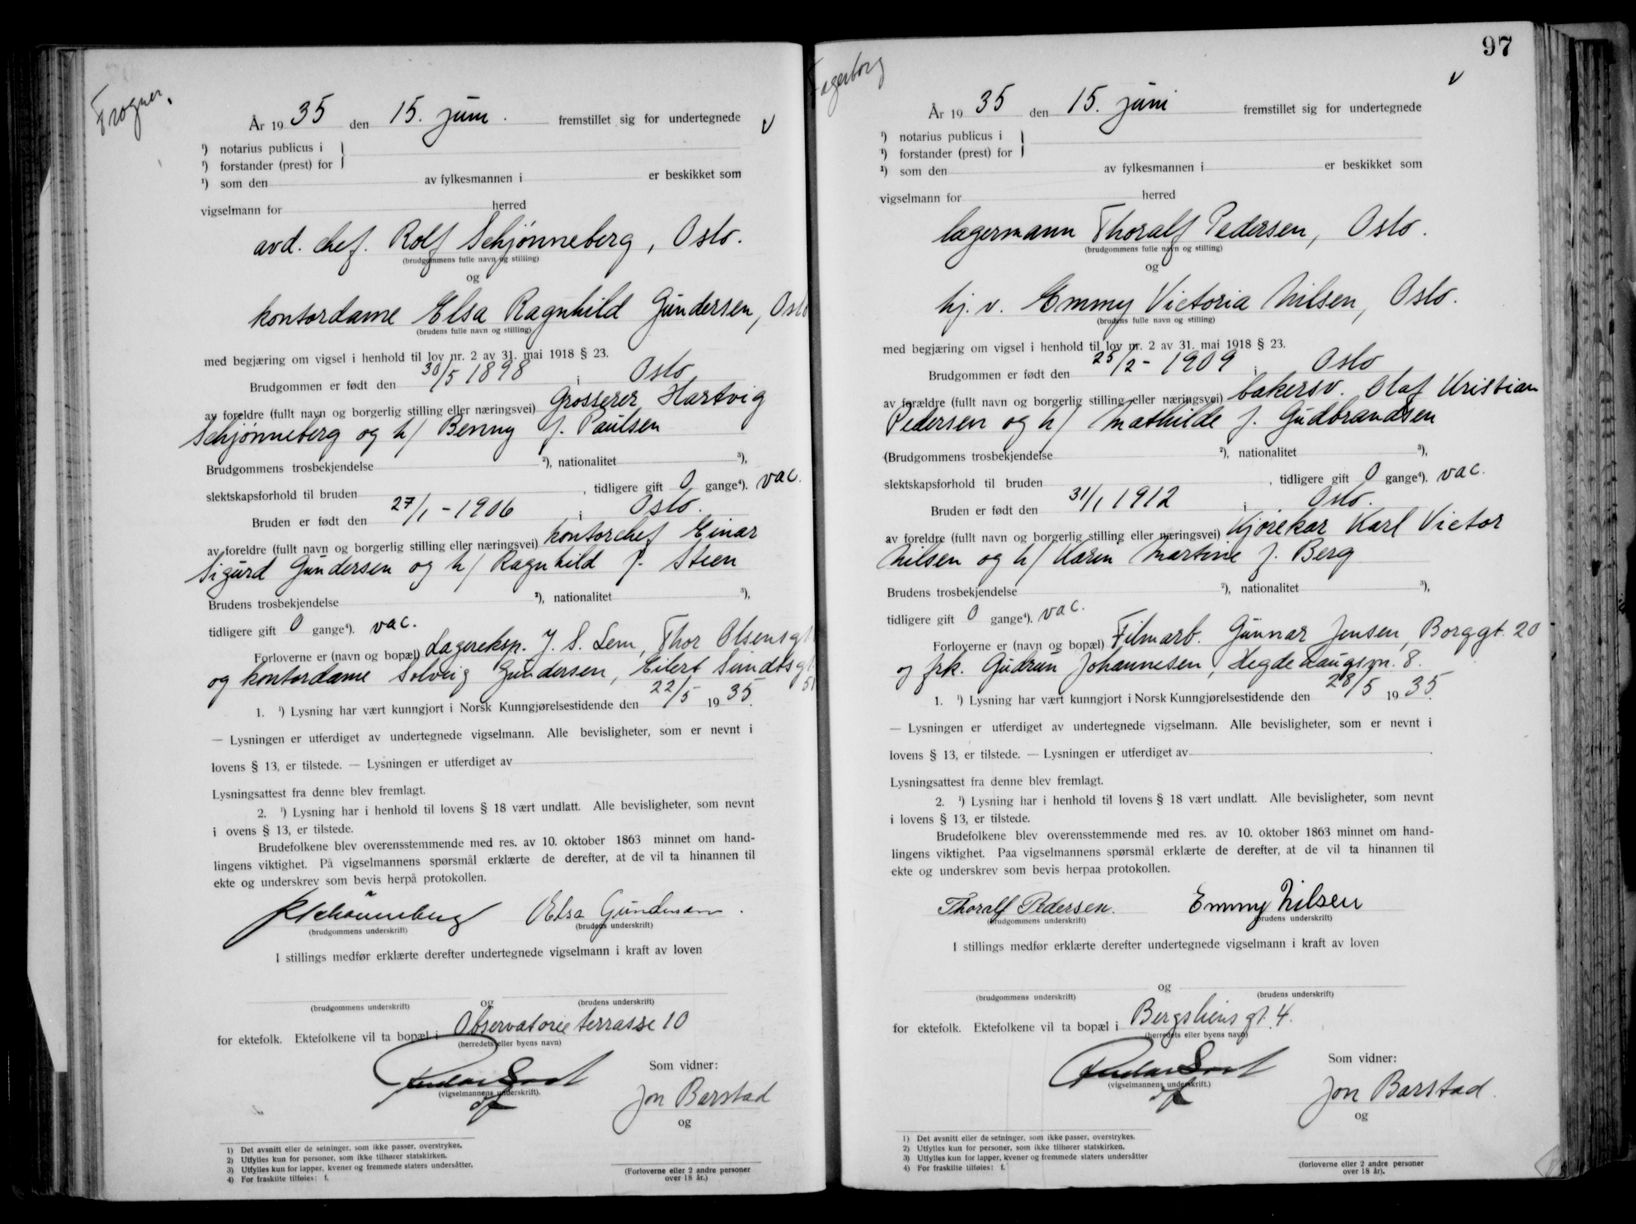 Frogner.
År 1935 den 15. juni. fremstillet sig for undertegnede
¹) notarius publicus i
¹) forstander (prest) for
¹) som den av fylkesmannen i er beskikket som
vigselmann for herred
avd. chef. Rolf Schjønneberg, Oslo.
(brudgommens fulle navn og stilling)
og
kontordame Elsa Ragnhild Gundersen, Oslo
(brudens fulle navn og stilling)
med begjæring om vigsel i henhold til lov nr. 2 av 31. mai 1918 § 23.
Brudgommen er født den 30/5 1898 i Oslo
av foreldre (fullt navn og borgerlig stilling eller næringsvei) Grosserer Hartvig
Schjønneberg og h/ Benny f. Paulsen
Brudgommens trosbekjendelse ²), nationalitet ³),
slektskapsforhold til bruden , tidligere gift 0 gange⁴). vac.
Bruden er født den 27/1 - 1906 i Oslo.
av foreldre (fullt navn og borgerlig stilling eller næringsvei) kontorchef Einar
Sigurd Gundersen og h/ Ragnhild f. Steen
Brudens trosbekjendelse ²), nationalitet ³),
tidligere gift 0 gange⁴). vac.
Forloverne er (navn og bopæl) Lagereksp. J. S. Lem, Thor Olsensgt
og kontordame Solveig Gundersen, Eilert Sundtsgt
51
1. ¹) Lysning har vært kunngjort i Norsk Kunngjørelsestidende den 22/5 1935.
— Lysningen er utferdiget av undertegnede vigselmann. Alle bevisligheter, som er nevnt i
lovens § 13, er tilstede. — Lysningen er utferdiget av
Lysningsattest fra denne blev fremlagt.
2. ¹) Lysning har i henhold til lovens § 18 vært undlatt. Alle bevisligheter, som nevnt
i ovens § 13, er tilstede.
Brudefolkene blev overensstemmende med res. av 10. oktober 1863 minnet om hand-
lingens viktighet. På vigselmannens spørsmål erklærte de derefter, at de vil ta hinannen til
ekte og underskrev som bevis herpå protokollen.
RSchønneberg Elsa Gundersen.
(brudgommens underskrift) (brudens underskrift)
I stillings medfør erklærte derefter undertegnede vigselmann i kraft av loven
og
(brudgommens underskrift) (brudens underskrift)
for ektefolk. Ektefolkene vil ta bopæl i Observatorie terrasse 10
(herredets eller byens navn)
Som vidner:
(vigselmannens underskrift).
Jon Barstad
og
1) Det avsnitt eller de setninger, som ikke passer, overstrykes.
2) Utfylles kun for personer, som ikke tilhører statskirken.
3) Utfylles kun for lapper, kvener og fremmede staters undersåtter.
4) For fraskilte tilføies: f.
(Forloverne eller 2 andre personer
over 18 år.)
97
Fagerborg
År 1935 den 15. juni fremstillet sig for undertegnede
¹) notarius publicus i
¹) forstander (prest) for
¹) som den av fylkesmannen i er beskikket som
vigselmann for herred
lagermann Thoralf Pedersen, Oslo.
(brudgommens fulle navn og stilling)
og
hj. v. Emmy Victoria Nilsen, Oslo.
(brudens fulle navn og stilling)
med begjæring om vigsel i henhold til lov nr. 2 av 31. mai 1918 § 23.
Brudgommen er født den 25/2 - 1909 i Oslo
av forældre (fullt navn og borgerlig stilling eller næringsvei) bakersv. Olaf Kristian
Pedersen og h/ Mathilde f. Gudbrandsen
(Brudgommens trosbekjendelse ²), nationalitet ³),
slektskapsforhold til bruden , tidligere gift 0 gange⁴). vac.
Bruden er født den 31/1 1912 i Oslo.
av foreldre (fullt navn og borgerlig stilling eller næringsvei) Kjørekar Karl Victor
Nilsen og h/ Karen Martine f. Berg
Brudens trosbekjendelse ²), nationalitet ³),
tidligere gift 0 gange⁴). vac.
Forloverne er (navn og bopæl) Filmarb. Gunnar Jensen, Borggt. 20
og frk. Gudrun Johannesen, Hegdehaugsvn. 8.
1. ¹) Lysning har vært kunngjort i Norsk Kunngjørelsestidende den 28/5 1935.
— Lysningen er utferdiget av undertegnede vigselmann. Alle bevisligheter, som er nevnt i
lovens § 13, er tilstede. — Lysningen er utferdiget av .
Lysningsattest fra denne blev fremlagt.
2. ¹) Lysning har i henhold til lovens § 18 vært undlatt. Alle bevisligheter, som nevnt
i lovens § 13, er tilstede.
Brudefolkene blev overensstemmende med res. av 10. oktober 1863 minnet om hand-
lingens viktighet. Paa vigselmannens spørsmål erklærte de derefter, at de vil ta hinannen til
ekte og underskrev som bevis herpaa protokollen.
Thoralf Pedersen. Emmy Nilsen
(brudgommens underskrift) (brudens underskrift)
I stillings medfør erklærte derefter undertegnede vigselmann i kraft av loven
og
(brudgommens underskrift) (brudens underskrift)
for ektefolk. Ektefolkene vil ta bopæl i Bergsliens gt. 4.
(herredets eller byens navn)
Som vidner:
(vigselmannens underskrift.)
Jon Barstad.
og
1) Det avsnitt eller de setninger, som ikke passer, overstrykes.
2) Utfylles kun for personer, som ikke tilhører statskirken.
3) Utfylles kun for lapper, kvener og fremmede staters undersåtter
4) For fraskilte tilføies: f.
(forloverne eller 2 andre personer
over 18 år).